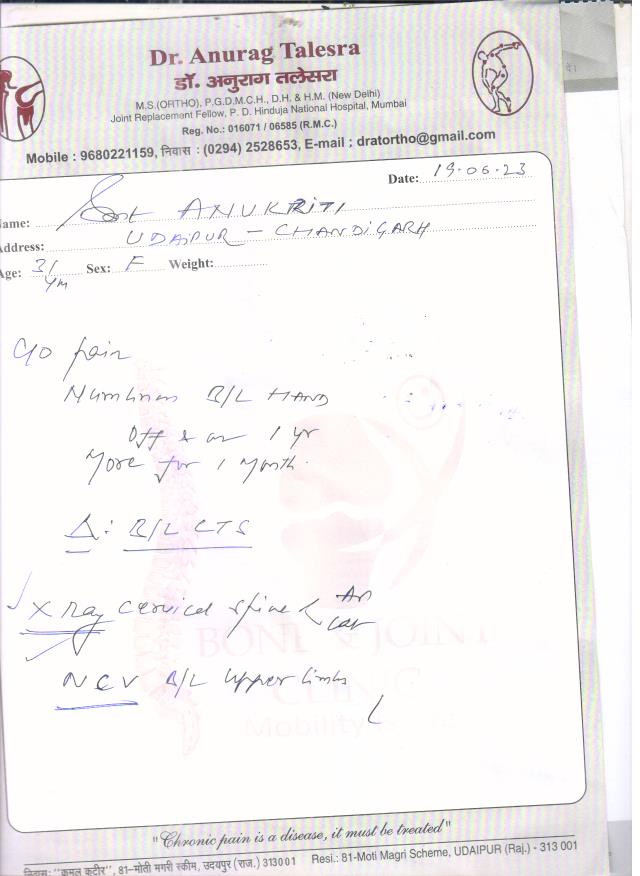 Dr. Anurag Talesra
डॉ. अनुराग तलेसरा
M.S.(ORTHO), P.G.D.M.C.H., D.H. & H.M. (New Delhi)
Joint Replacement Fellow, P. D. Hinduja National Hospital, Mumbai
Reg. No.: 016071 / 06585 (R.M.C.)
Mobile : 9680221159, निवास : (0294) 2528653, E-mail ; dratortho@gmail.com
Date: 19.06.23
Name: ANUKRITI
Address: UDAIPUR - CHANDIGARH
Age: 31 Sex: F Weight:
C/O pain
Numbness B/L HAND
Off & on 1 yr
More for 1 Month.
Δ: B/L CTS
X Ray cervical spine < AP
Lat
NCV B/L Upper limbs
BONE & JOINT
CLINIC
Mobility
"Chronic pain is a disease, it must be treated"
निवास: "कमल कुटीर", 81-मोती मगरी स्कीम, उदयपुर (राज.) 313001 Resi.: 81-Moti Magri Scheme, UDAIPUR (Raj.) - 313 001